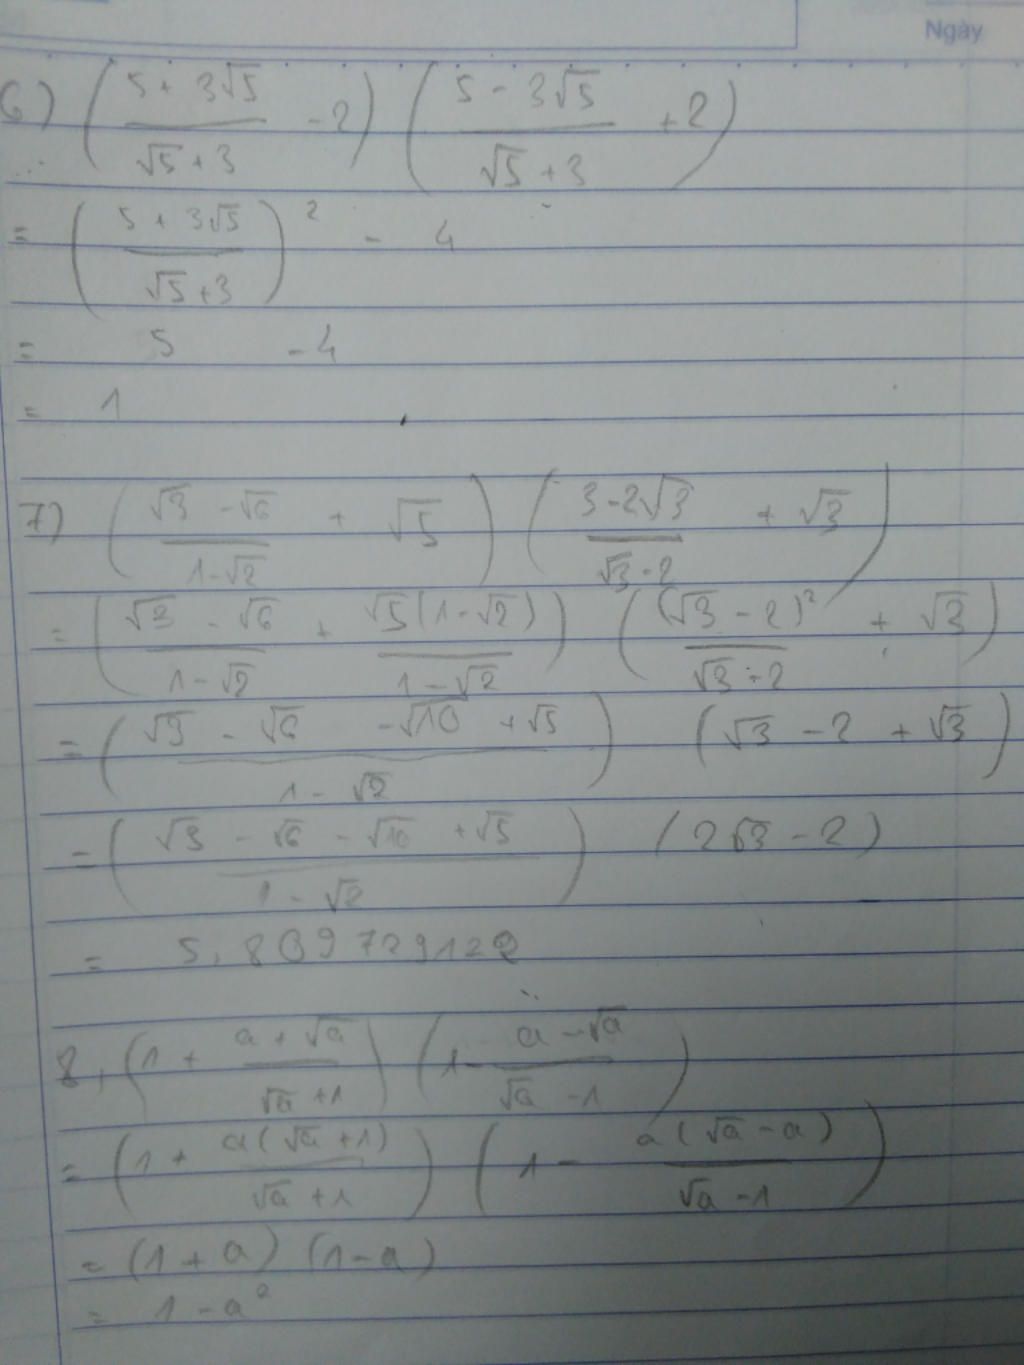 Ngày
6) ( (5 + 3√5)/(√5 + 3) - 2 ) ( (5 - 3√5)/(√5 + 3) + 2 )
= ( (5 + 3√5)/(√5 + 3) )² - 4
= 5 - 4
= 1
7) ( (√3 - √6)/(1 - √2) + √5 ) ( (3 - 2√3)/(√3 - 2) + √3 )
= ( (√3 - √6)/(1 - √2) + √5(1 - √2)/(1 - √2) ) ( (√3 - 2)²/(√3 - 2) + √3 )
= ( (√3 - √6 - √10 + √5)/(1 - √2) ) (√3 - 2 + √3)
= ( (√3 - √6 - √10 + √5)/(1 - √2) ) (2√3 - 2)
= 5,809729122
8, (1 + (a + √a)/(√a + 1)) (1 - (a - √a)/(√a - 1))
= (1 + a(√a + 1)/(√a + 1)) (1 - a(√a - a)/(√a - 1))
= (1 + a) (1 - a)
= 1 - a²